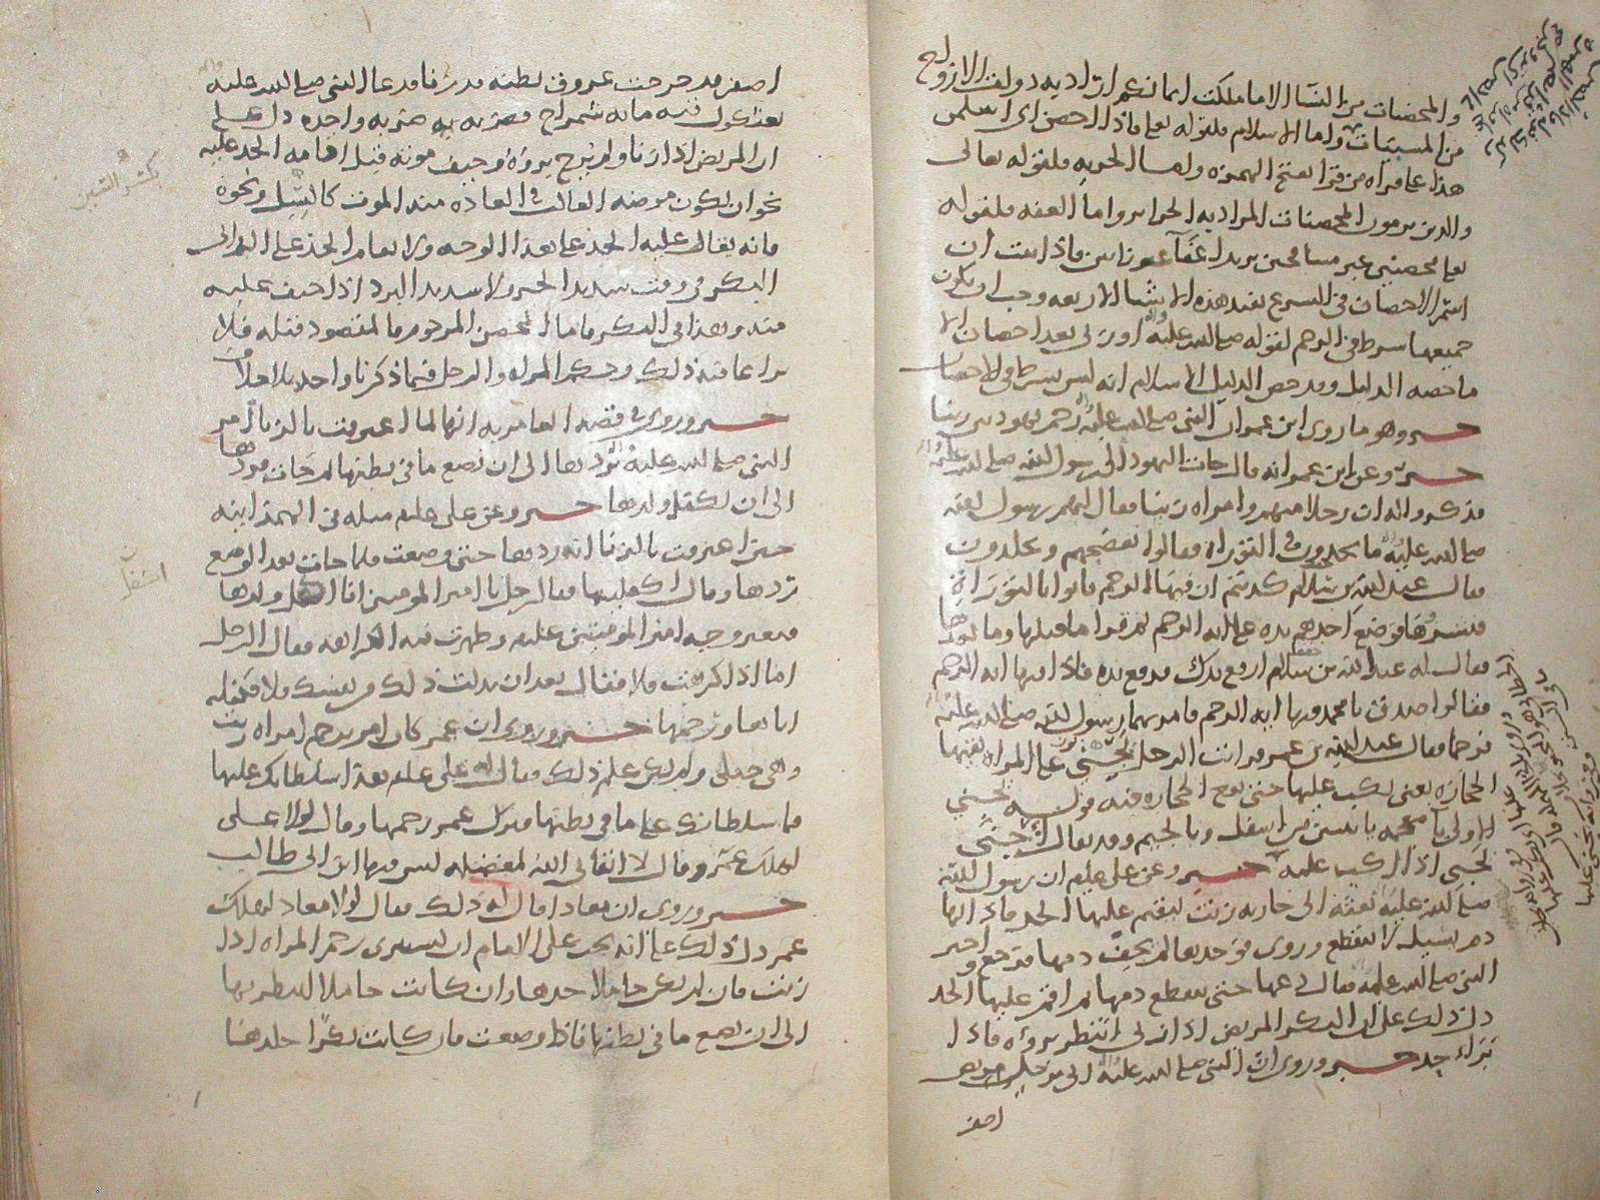 والمحصنات من النسا الا ما ملكت ايمانكم اراد به ذوات الازواج
من المسبيات واما الاسلام فلقوله تعالى فاذا احصن اي اسلمن
هذا على قراه من قرا بفتح الهمزه واما الحريه فلقوله تعالى
والذين يرمون المحصنات المراد به الحراير واما العفه فلقوله
تعالى محصنين غير مسافحين يريد اعفا غير زانين فاذا ثبت ان
اسم الاحصان في الشرع يفيد هذه الاشيا الاربعه وجب ان يكون
جميعها شرط في الرجم لقوله صلى الله عليه واله او زنى بعد احصان الا
ما خصه الدليل وقد خص الدليل الاسلام انه ليس بشرط في الاحصان
خبر وهو ما روى ابن عمر ان النبي صلى الله عليه واله رجم يهوديين زنيا
خبر وعن ابن عمر انه قال جات اليهود الى رسول الله صلى الله عليه واله
فذكروا له ان رجلا منهم وامراه زنيا فقال لهم رسول الله
صلى الله عليه واله ما تجدون في التوراه فقالوا نفضحهم ويجلدون
فقال عبد الله بن سلام كذبتم ان فيها الرجم فاتوا بالتوراة
فنشروها فوضع احدهم يده على ايه الرجم ثم قرا ما قبلها وما بعدها
فقال له عبد الله بن سلام ارفع يدك فرفع يده فاذا فيها ايه الرجم
فقالوا صدق يا محمد فيها ايه الرجم فامر بهما رسول الله صلى الله عليه واله
فرجما فقال عبد الله بن عمر فرايت الرجل يجني على المراه يقيها
الحجاره يعني يكب عليها حتى تقع الحجاره فيه قوله يجني
بالجيم وقد يقال اجنى
يجني اذا اكب عليه خبر وعن علي عليلم ان رسول الله
صلى الله عليه واله بعثه الى جاريه زنت ليقيم عليها الحد فاذا لها
دم يسيل لا ينقطع وروي فوجدها لم يجف دمها فرجع واخبر
النبي صلى الله عليه واله فقال دعها حتى ينقطع دمها ثم اقم عليها الحد
دل ذلك على ان البكر المريض اذا زنى انتظر بروه فاذا
برا حد خبر وروي ان النبي صلى الله عليه واله اتي برجل مريض
اصفر
اصفر قد خرجت عروق بطنه قد زنا فدعا النبي صلى الله عليه واله
بعثكول فيه مايه شمراخ فضربه به ضربه واحده دل على
ان المريض اذا زنا ولم يرج بروه وخيف موته قبل اقامه الحد عليه
نحو ان يكون مرضه الغالب في العاده منه الموت كالسل ونحوه
فانه يقام عليه الحد على هذا الوجه ولا يقام الحد على الزاني
البكر في وقت شديد الحر ولا شديد البرد اذا خيف عليه
منه وهذا في البكر فاما المحصن المرجوم فالمقصود قتله فلا
يراعا فيه ذلك وحكم المراه والرجل فيما ذكرنا واحد بلا خلاف
خبر وروي في قصه العامريه انها لما اعترفت بالزنا امر
النبي صلى الله عليه واله بردها الى ان تضع ما في بطنها ثم جات فردها
الى ان تكفل ولدها خبر وعن علي عليلم مثله في الهمدانيه
حين اعترفت بالزنا انه ردها حتى وضعت فلما جات بعد الوضع
ردها وقال اكفليه فقال رجل يا امير المومنين انا اكفل ولدها
فتغير وجه امير المومنين عليلم وظهرت فيه الكراهه فقال الرجل
اما اذا كرهت فلا فقال بعد ان بذلت ذلك من نفسك فلا فكفله
اياها ورجمها خبر وروي ان عمر كان امر برجم امراه زنت
وهي حبلى ولم يكن علم ذلك فقال له علي عليلم هذا سلطانك عليها
فما سلطانك على ما في بطنها فترك عمر رجمها وقال لولا علي
لهلك عمر وقال لا ابقاني الله لمعضله ليس فيها ابن ابي طالب
خبر وروي ان معاذا قال له ذلك فقال لولا معاذ لهلك
عمر دل ذلك على انه يجب على الامام ان يستبري رحم المراه اذا
زنت فان لم يكن حاملا حدها وان كانت حاملا انتظر بها
الى ان تضع ما في بطنها فاذا وضعت فان كانت بكرا جلدها
بكسر السين